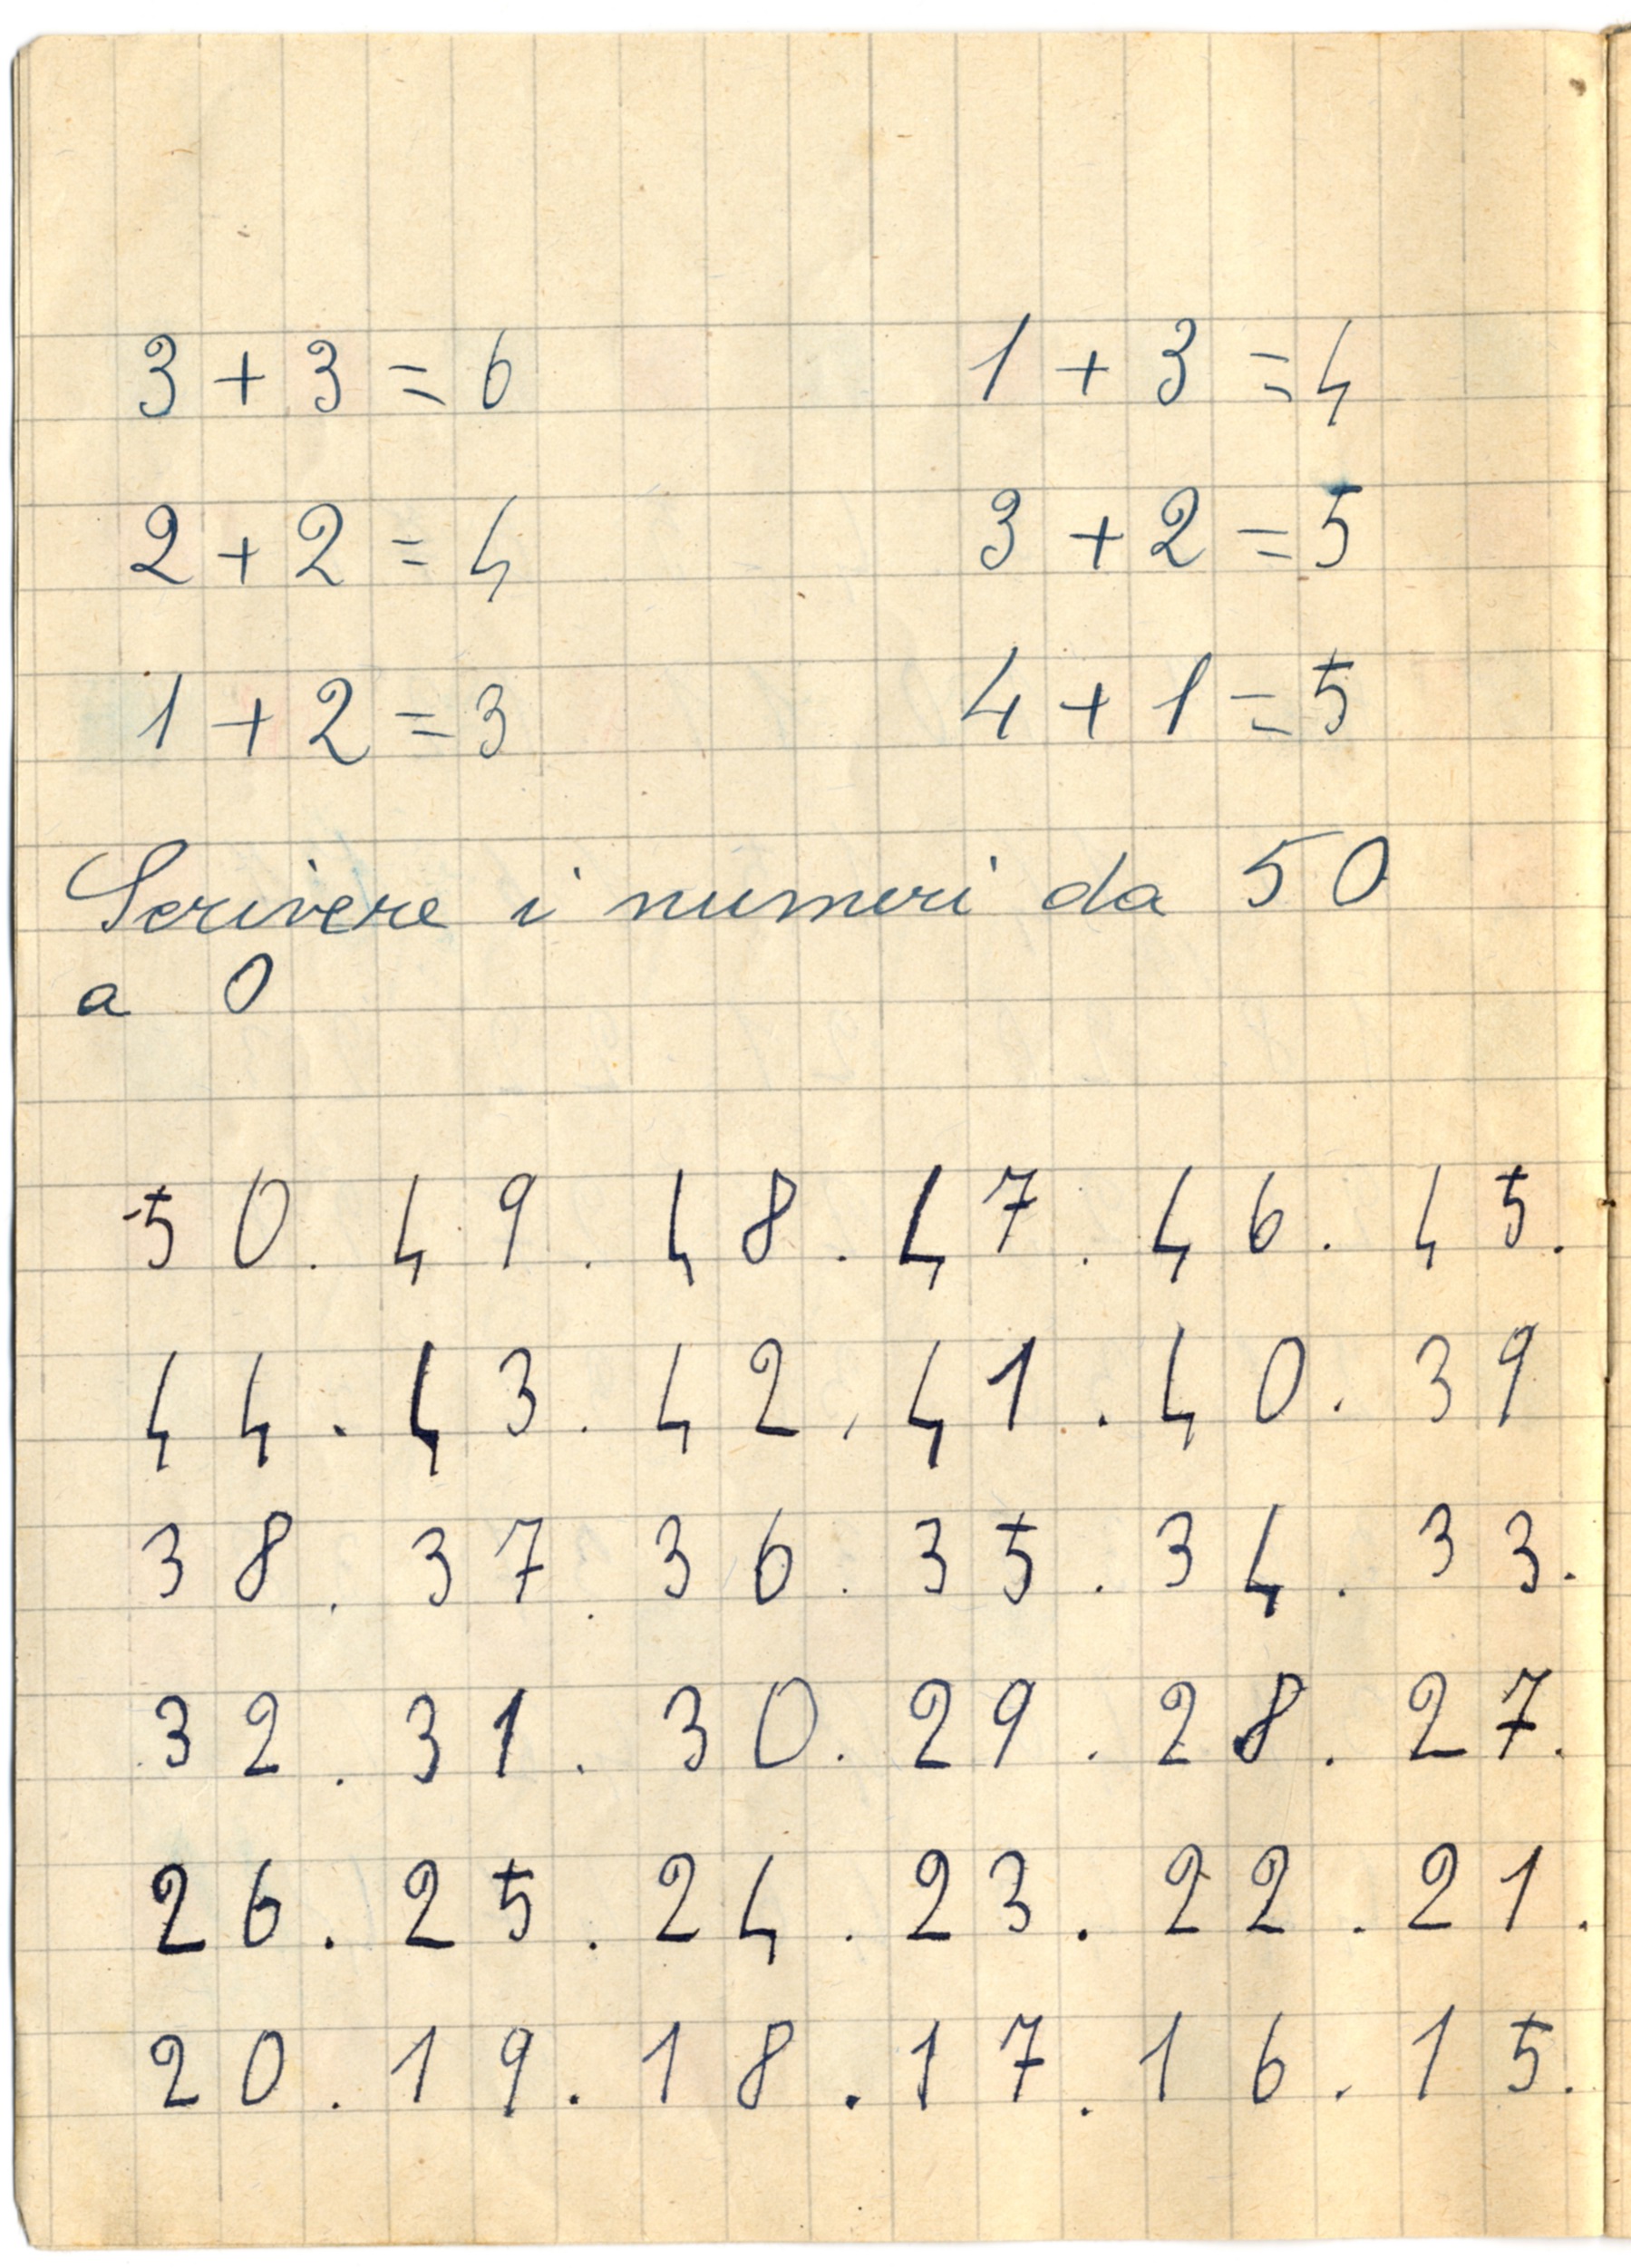 3 + 3 = 6 1 + 3 = 4
2 + 2 = 4 3 + 2 = 5
1 + 2 = 3 4 + 1 = 5
Scrivere i numeri da 50
a 0
50. 49. 48. 47. 46. 45.
44. 43. 42. 41. 40. 39
38. 37. 36. 35. 34. 33.
32. 31. 30. 29. 28. 27.
26. 25. 24. 23. 22. 21.
20. 19. 18. 17. 16. 15.